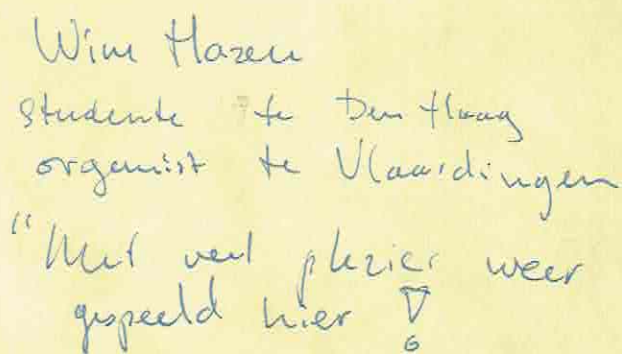 Wim Hazen
studente te Den Haag
organist te Vlaardingen
"Met veel plezier weer
gespeeld hier !